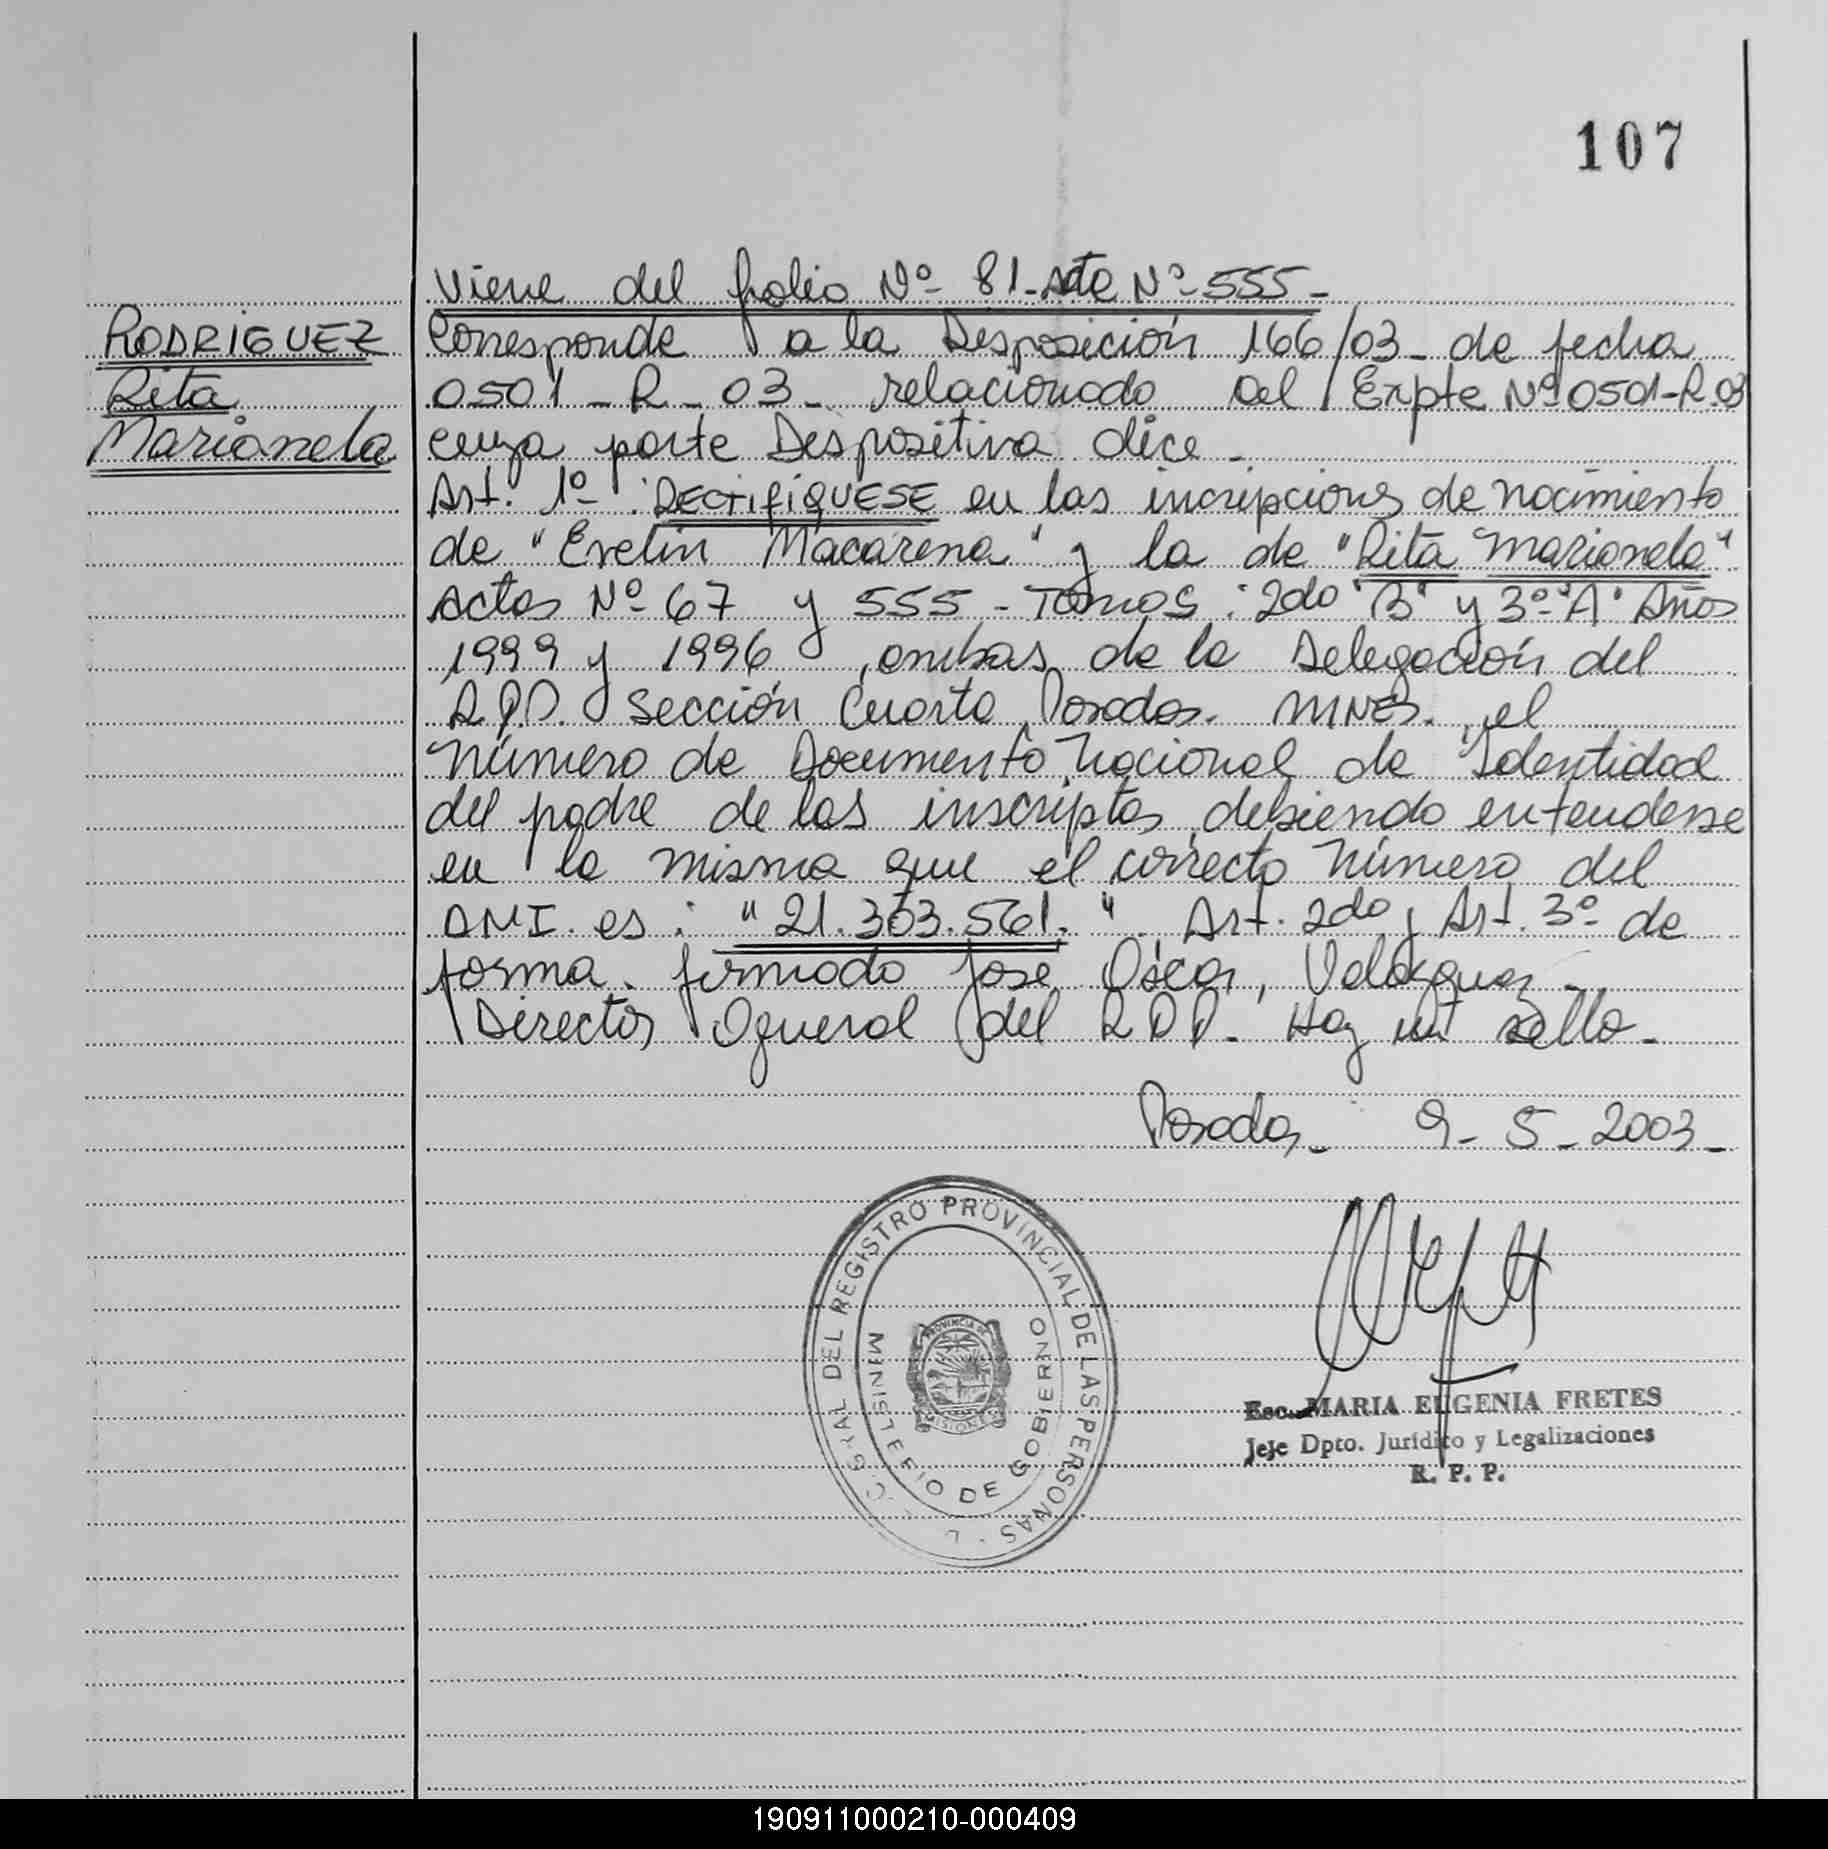 107
Viene del folio Nº 81-Acta Nº 555-
RODRIGUEZ
Rita
Marianela
Corresponde a la Disposición 166/03- de fecha
0501-R-03- relacionado al Expte Nº 0501-R.03
cuya parte Dispositiva dice-
Art. 1º: RECTIFIQUESE en las incripciones de nacimiento
de "Evelin Macarena" y la de "Rita Marianela"
Actas Nº 67 y 555-Tomos: 2do "B" y 3º "A" Años
1999 y 1996, ambas de la Delegación del
R.P.P. Sección Cuarta, Posadas. MNES., el
Número de Documento Nacional de Identidad
del padre de las inscriptas, debiendo entenderse
en la misma que el correcto Número del
DNI. es: "21.303.561." Art. 2do, Art. 3º de
forma. firmado José Oscar, Velazquez-
Director General del RPP- Hay un sello-
Posadas- 9-5-2003-
GRAL DEL REGISTRO PROVINCIAL DE LAS PERSONAS
MINISTERIO DE GOBIERNO
PROVINCIA DE
MISIONES
Esc. MARIA EUGENIA FRETES
Jefe Dpto. Jurídico y Legalizaciones
R. P. P.
190911000210-000409